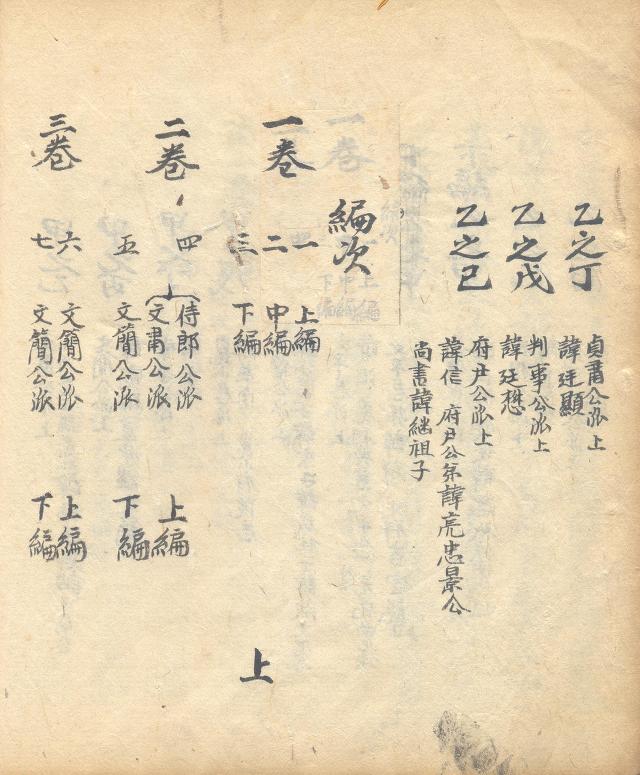 乙之丁
貞肅公派上
諱廷顯
乙之戊
判事公派上
諱廷懋
乙之巳
府尹公派上
諱信 府尹公弟諱亮忠景公
尚書諱繼祖子
編次
一巻
一 上編
二 中編
三 下編
二巻
四 侍郎公派 上編
文肅公派
五 文簡公派 下編
三巻
六 文簡公派 上編
七 文簡公派 下編
上